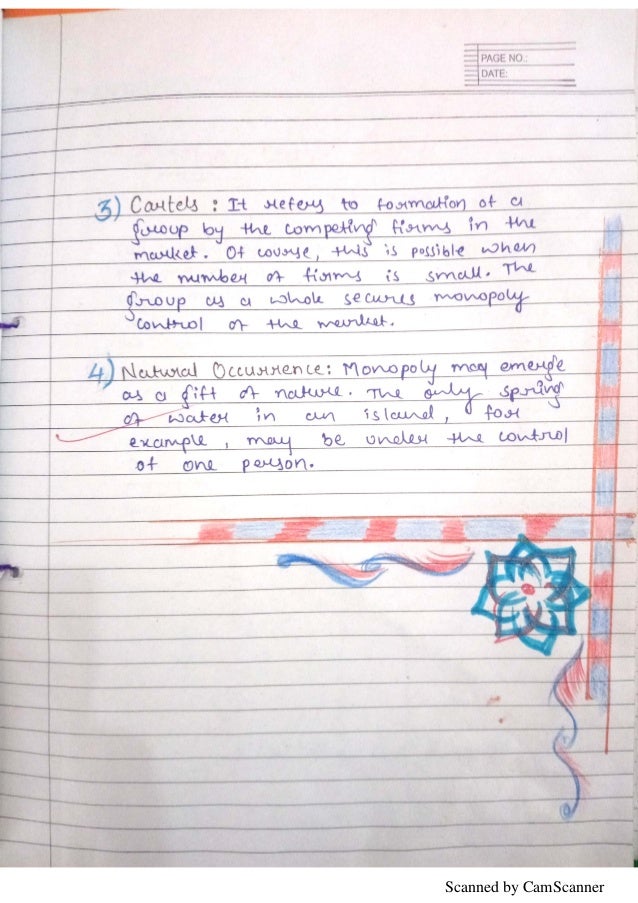 PAGE NO.:
DATE:
3) Cartels : It refers to formation of a
group by the competing firms in the
market. Of course, this is possible when
the number of firms is small. The
group as a whole secures monopoly
control of the market.
4) Natural Occurrence: Monopoly may emerge
as a gift of nature. The only spring
of water in an island, for
example, may be under the control
of one person.
Scanned by CamScanner